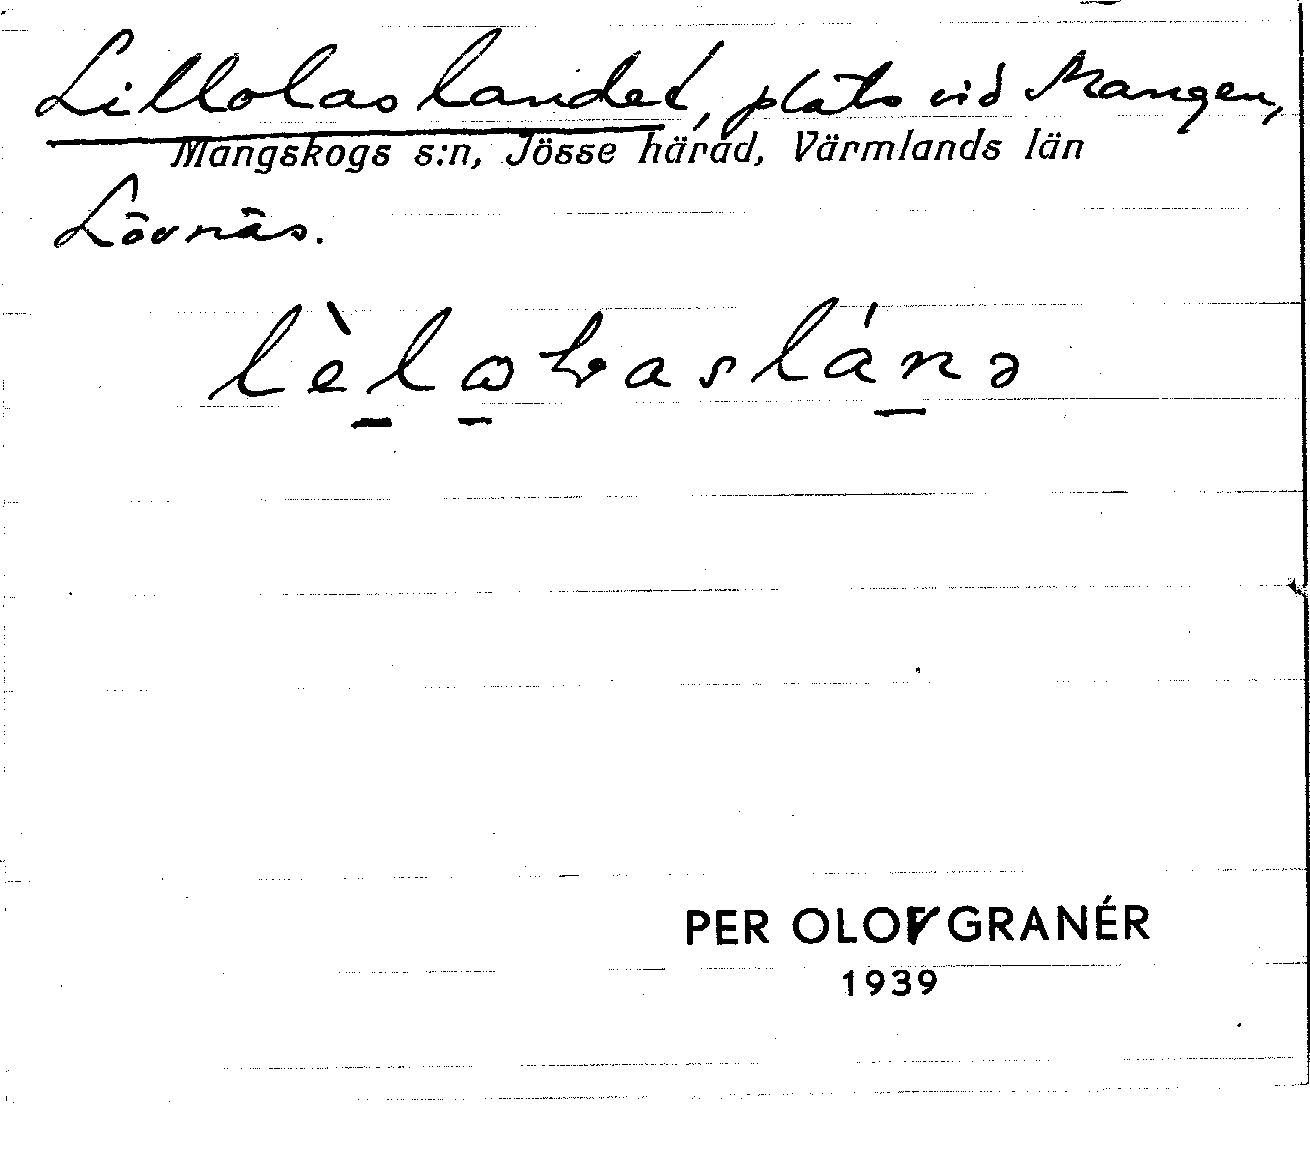 Lillolaslandet, plats vid Mangen,
Mangskogs s:n, Jösse härad, Värmlands län
Lövnäs.
PER OLOF GRANÉR
1939